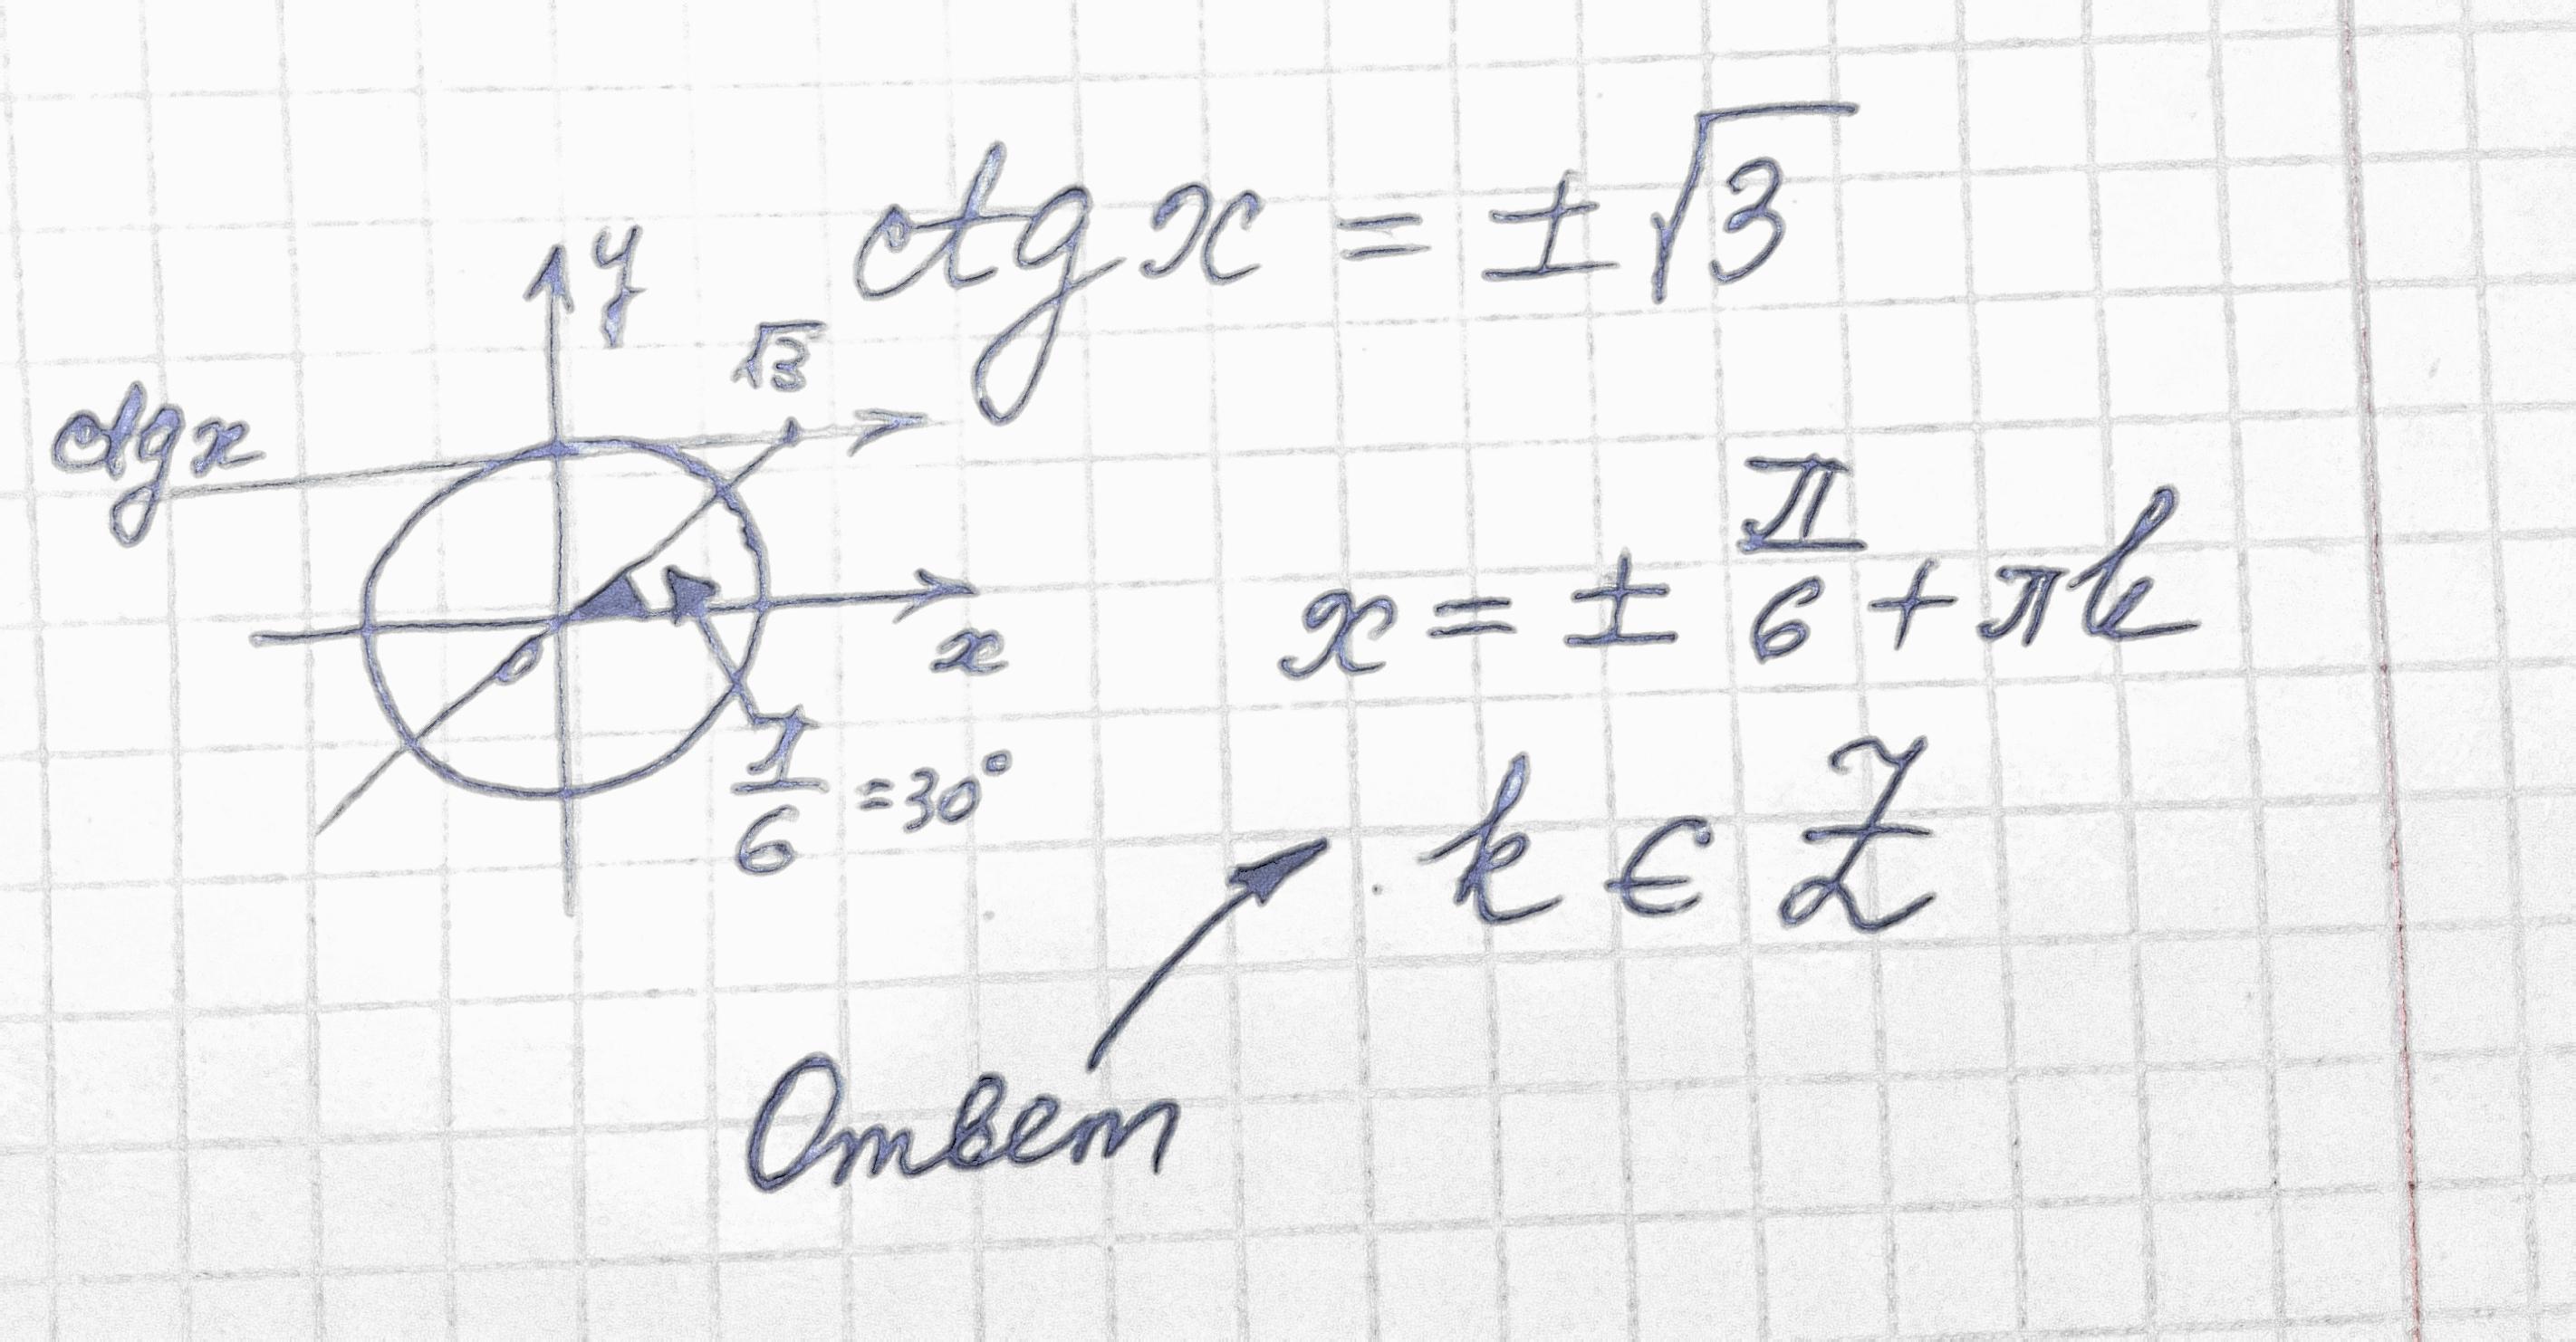 ctg x = ±√3
y
√3
ctg x
x
0
π/6 = 30°
x = ± π/6 + πk
k ∈ Z
Ответ